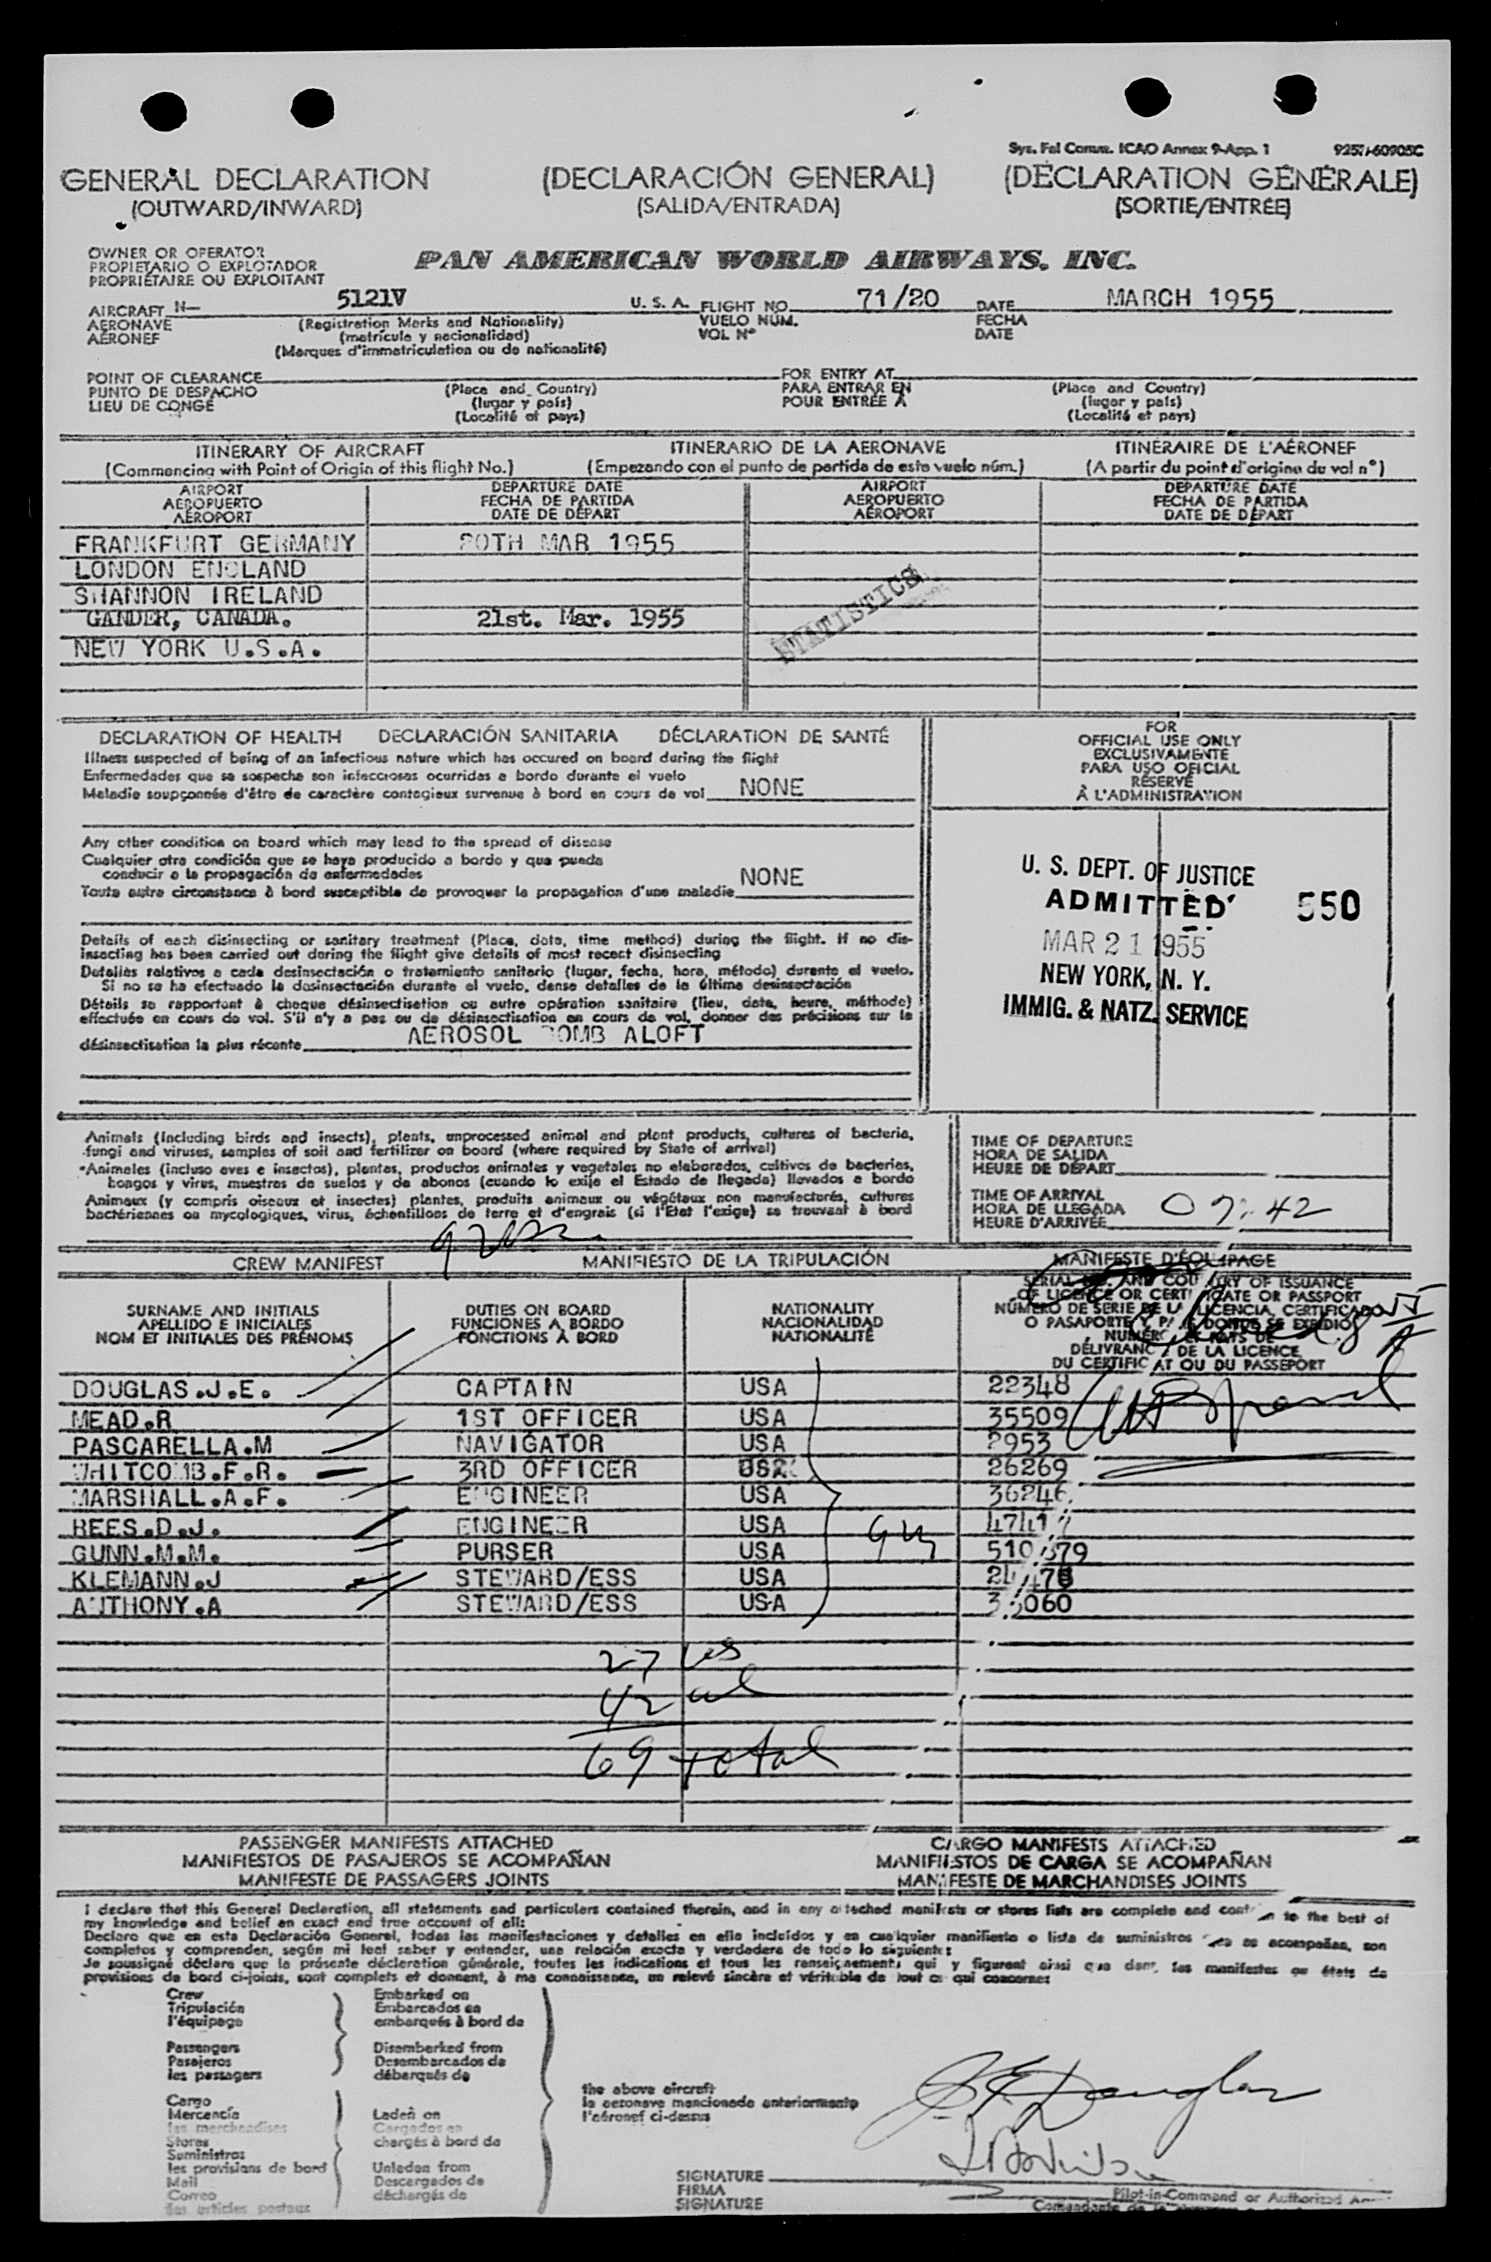 Sys. Fal Comm. ICAO Annex 9-App. 1
GENERAL DECLARATION (DECLARACIÓN GENERAL) (DÉCLARATION GÉNÉRALE)
(OUTWARD/INWARD) (SALIDA/ENTRADA) (SORTIE/ENTRÉE)
OWNER OR OPERATOR
PROPIETARIO O EXPLOTADOR
PROPRIÉTAIRE OU EXPLOITANT
PAN AMERICAN WORLD AIRWAYS, INC.
AIRCRAFT N— 5121V U. S. A. FLIGHT NO. 71/20 DATE MARCH 1955
AERONAVE (Registration Marks and Nationality) VUELO NÚM. FECHA
AÉRONEF (matrícula y nacionalidad) VOL Nº DATE
(Marques d'immatriculation ou de nationalité)
POINT OF CLEARANCE FOR ENTRY AT
PUNTO DE DESPACHO (Place and Country) PARA ENTRAR EN (Place and Country)
LIEU DE CONGÉ (lugar y país) POUR ENTRÉE À (lugar y país)
(Localité et pays) (Localité et pays)
ITINERARY OF AIRCRAFT ITINERARIO DE LA AERONAVE ITINÉRAIRE DE L'AÉRONEF
(Commencing with Point of Origin of this flight No.) (Empezando con el punto de partida de este vuelo núm.) (A partir du point d'origine du vol nº)
AIRPORT DEPARTURE DATE AIRPORT DEPARTURE DATE
AEROPUERTO FECHA DE PARTIDA AEROPUERTO FECHA DE PARTIDA
AÉROPORT DATE DE DÉPART AÉROPORT DATE DE DÉPART
FRANKFURT GERMANY 20TH MAR 1955
LONDON ENGLAND
SHANNON IRELAND
GANDER, CANADA. 21st. Mar. 1955
STATISTICS
NEW YORK U.S.A.
DECLARATION OF HEALTH DECLARACIÓN SANITARIA DÉCLARATION DE SANTÉ
Illness suspected of being of an infectious nature which has occured on board during the flight
Enfermedades que se sospeche son infecciosas ocurridas a bordo durante el vuelo
Maladie soupçonnée d'être de caractère contagieux survenue à bord en cours de vol NONE
Any other condition on board which may lead to the spread of disease
Cualquier otra condición que se haya producido a bordo y que pueda
conducir a la propagación de enfermedades
Toute autre circonstance à bord susceptible de provoquer la propagation d'une maladie NONE
Details of each disinsecting or sanitary treatment (Place, date, time method) during the flight. If no dis-
insecting has been carried out during the flight give details of most recect disinsecting
Detalles relativos a cada desinsectación o tratamiento sanitario (lugar, fecha, hora, método) durante el vuelo.
Si no se ha efectuado la desinsectación durante el vuelo, dense detalles de la última desinsectación
Détails se rapportant à chaque désinsectisation ou autre opération sanitaire (lieu, date, heure, méthode)
effectuée en cours de vol. S'il n'y a pas eu de désinsectisation en cours de vol, donner des précisions sur la
désinsectisation la plus récente AEROSOL BOMB ALOFT
FOR
OFFICIAL USE ONLY
EXCLUSIVAMENTE
PARA USO OFICIAL
RÉSERVÉ
À L'ADMINISTRATION
U. S. DEPT. OF JUSTICE
ADMITTED 550
MAR 21 1955
NEW YORK, N. Y.
IMMIG. & NATZ. SERVICE
Animals (Including birds and insects), plants, unprocessed animal and plant products, cultures of bacteria,
fungi and viruses, samples of soil and fertilizer on board (where required by State of arrival)
Animales (incluso aves e insectos), plantas, productos animales y vegetales no elaborados, cultivos de bacterias,
hongos y virus, muestras de suelos y de abonos (cuando lo exija el Estado de llegada) llevados a bordo
Animaux (y compris oiseaux et insectes) plantes, produits animaux ou végétaux non manufacturés, cultures
bactériennes ou mycologiques, virus, échantillons de terre et d'engrais (si l'Etat l'exige) se trouvant à bord
TIME OF DEPARTURE
HORA DE SALIDA
HEURE DE DÉPART
TIME OF ARRIVAL
HORA DE LLEGADA
HEURE D'ARRIVÉE
CREW MANIFEST MANIFIESTO DE LA TRIPULACIÓN MANIFESTE D'ÉQUIPAGE
SURNAME AND INITIALS
APELLIDO E INICIALES
NOM ET INITIALES DES PRÉNOMS
DUTIES ON BOARD
FUNCIONES A BORDO
FONCTIONS À BORD
NATIONALITY
NACIONALIDAD
NATIONALITÉ
SERIAL AND COUNTRY OF ISSUANCE
OF LICENCE OR CERTIFICATE OR PASSPORT
NÚMERO DE SERIE DE LA LICENCIA, CERTIFICADO
O PASAPORTE Y DONDE SE EXPIDIÓ
DÉLIVRANCE DE LA LICENCE
DU CERTIFICAT OU DU PASSEPORT
DOUGLAS.J.E. CAPTAIN USA 22348
MEAD.R 1ST OFFICER USA 35509
PASCARELLA.M NAVIGATOR USA 2953
WHITCOMB.F.R. 3RD OFFICER USA 26269
MARSHALL.A.F. ENGINEER USA 36246
REES.D.J. ENGINEER USA
GUNN.M.M. PURSER USA
KLEMANN.J STEWARD/ESS USA
ANTHONY.A STEWARD/ESS USA
27 US
42 al
69 total
PASSENGER MANIFESTS ATTACHED CARGO MANIFESTS ATTACHED
MANIFIESTOS DE PASAJEROS SE ACOMPAÑAN MANIFIESTOS DE CARGA SE ACOMPAÑAN
MANIFESTE DE PASSAGERS JOINTS MANIFESTE DE MARCHANDISES JOINTS
I declare that this General Declaration, all statements and particulars contained therein, and in any attached manifests or stores lists are complete and to the best of
my knowledge and belief an exact and true account of all:
Declaro que en esta Declaración General, todas las manifestaciones y detalles en ella incluídos y en cualquier manifiesto o lista de suministros que se acompañan, son
completos y comprenden, según mi leal saber y entender, una relación exacta y verdadera de todo lo siguiente:
Je soussigné déclare que la présente déclaration générale, toutes les indications et tous les renseignements qui y figurent ainsi que dans les manifestes ou états de
provisions de bord ci-joints, sont complets et donnent, à ma connaissance, un relevé sincère et véritable de tout ce qui concerne:
Crew Embarked on
Tripulación Embarcados en
l'équipage embarqués à bord de
Passengers Disembarked from
Pasajeros Desembarcados de
les passagers débarqués de
the above aircraft
la aeronave mencionada anteriormente
l'aéronef ci-dessus
Cargo
Mercancía Laden on
les merchandises Cargados en
Stores chargés à bord de
Suministros
les provisions de bord Unladen from
Mail Descargados de
Correo déchargés de
les articles postaux
J. E. Douglas
SIGNATURE
FIRMA
SIGNATURE
Pilot-in-Command or Authorized